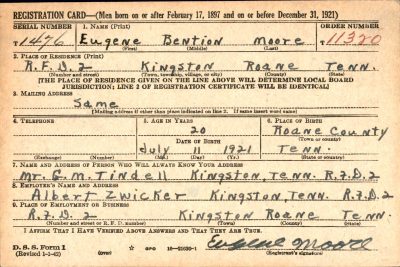 REGISTRATION CARD—(Men born on or after February 17, 1897 and on or before December 31, 1921)
SERIAL NUMBER 1. NAME (Print) ORDER NUMBER
T 1476 Eugene Bention Moore T 11320
(First) (Middle) (Last)
2. PLACE OF RESIDENCE (Print)
R.F.D. 2 Kingston Roane Tenn.
(Number and street) (Town, township, village, or city) (County) (State)
[THE PLACE OF RESIDENCE GIVEN ON THE LINE ABOVE WILL DETERMINE LOCAL BOARD
JURISDICTION; LINE 2 OF REGISTRATION CERTIFICATE WILL BE IDENTICAL]
3. MAILING ADDRESS
Same
[Mailing address if other than place indicated on line 2. If same insert word same]
4. TELEPHONE 5. AGE IN YEARS 6. PLACE OF BIRTH
20 Roane County
DATE OF BIRTH (Town or county)
July 11 1921 Tenn.
(Exchange) (Number) (Mo.) (Day) (Yr.) (State or country)
7. NAME AND ADDRESS OF PERSON WHO WILL ALWAYS KNOW YOUR ADDRESS
Mr. G. M. Tindell Kingston, Tenn. R.F.D.2
8. EMPLOYER'S NAME AND ADDRESS
Albert Zwicker Kingston, Tenn. R.F.D.2
9. PLACE OF EMPLOYMENT OR BUSINESS
R.F.D. 2 Kingston Roane Tenn.
(Number and street or R. F. D. number) (Town) (County) (State)
I AFFIRM THAT I HAVE VERIFIED ABOVE ANSWERS AND THAT THEY ARE TRUE.
D. S. S. Form 1
(Revised 1-1-42) (over) Eugene Moore
(Registrant's signature)